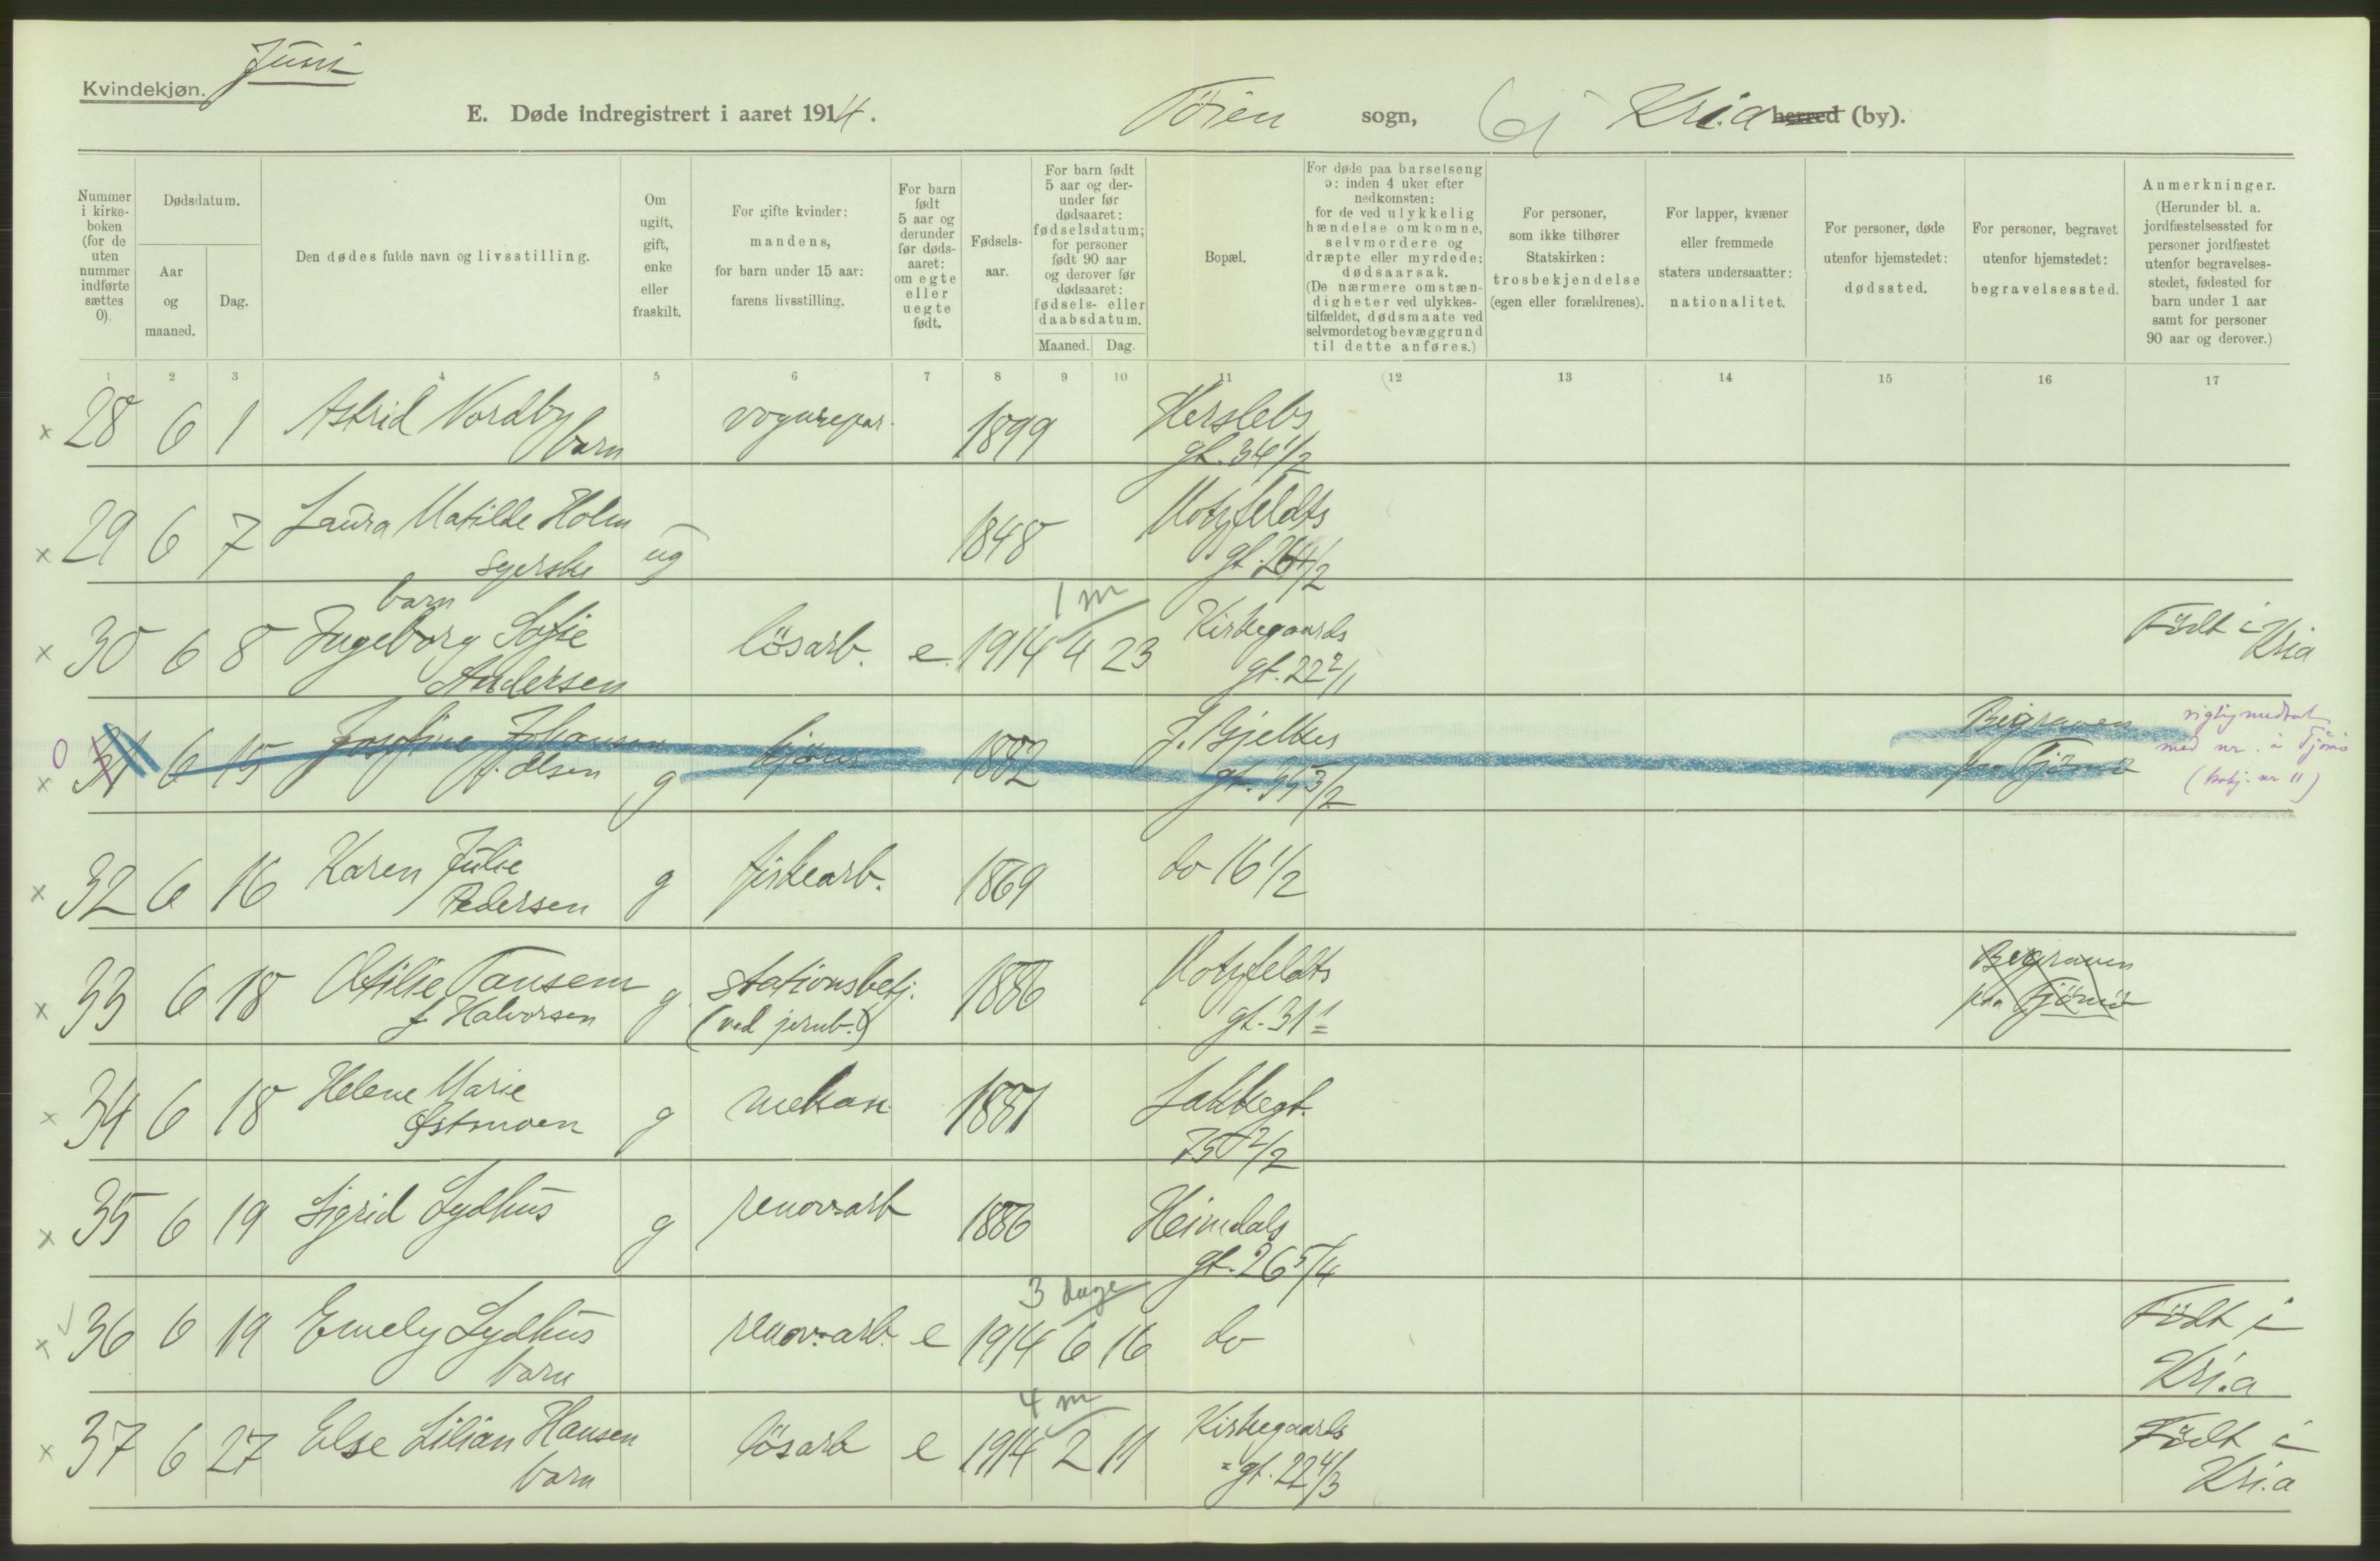 Juni
Kvindekjøn.
E. Døde indregistrert i aaret 1914. Töien sogn, Kri.a herred (by).
Nummer i kirkeboken (for de uten nummer indførte sættes 0).
Dødsdatum.
Aar og maaned.
Dag.
Den dødes fulde navn og livsstilling.
Om ugift, gift, enke eller fraskilt.
For gifte kvinder: mandens, for barn under 15 aar: farens livsstilling.
For barn født 5 aar og derunder før dødsaaret: om egte eller uegte født.
Fødselsaar.
For barn født 5 aar og derunder før dødsaaret: fødselsdatum; for personer født 90 aar og derover før dødsaaret: fødsels- eller daabsdatum.
Maaned. Dag.
Bopæl.
For døde paa barselseng ɔ: inden 4 uker efter nedkomsten: for de ved ulykkelig hændelse omkomne, selvmordere og dræpte eller myrdede: dødsaarsak. (De nærmere omstændigheter ved ulykkestilfældet, dødsmaate ved selvmordet og bevæggrund til dette anføres.)
For personer, som ikke tilhører Statskirken: trosbekjendelse (egen eller forældrenes).
For lapper, kvæner eller fremmede staters undersaatter: nationalitet.
For personer, døde utenfor hjemstedet: dødssted.
For personer, begravet utenfor hjemstedet: begravelsessted.
Anmerkninger. (Herunder bl. a. jordfæstelsessted for personer jordfæstet utenfor begravelsesstedet, fødested for barn under 1 aar samt for personer 90 aar og derover.)
1 2 3 4 5 6 7 8 9 10 11 12 13 14 15 16 17
x 28 6 1 Astrid Nordby vognrepar. 1899 Herslebs
barn gt. 34 1/2
x 29 6 7 Laura Matilde Holm ug 1848 Motzfeldts
syerske
barn 1 m
x 30 6 8 Ingeborg Sofie lösarb. e. 1914 4 23 Kirkegaards Födt i
Andersen gt. 22 2/1 Kria
0 x 31 6 15 Josefine Johansen g 1882 J. Bjelkes Begraven
f. Olsen gt. 35 3/2 paa Tjömö
med nr. i Tjömö
nr 11)
x 32 6 16 Karen Julie g fiskearb. 1869 do 16 1/2
Pedersen
x 33 6 18 Otilie Tansem g. stationsbetj. 1886 Motzfeldts Begraven
f. Halvorsen (ved jernb.) gt. 31 1 paa Tjömö
x 34 6 18 Helene Marie g mekan. 1881 Lakkegt.
Østmoen 75 2/2
x 35 6 19 Sigrid Lydhus g renov.arb 1886 Heimdals
gt. 26 5/4
3 dage
x 36 6 19 Emely Lydhus renov.arb. e 1914 6 16 do Födt i
barn Kri.a
4 m
x 37 6 27 Else Lilian Hansen lösarb e 1914 2 11 Kirkegaards Födt i
barn gt. 22 4/3 Kri.a